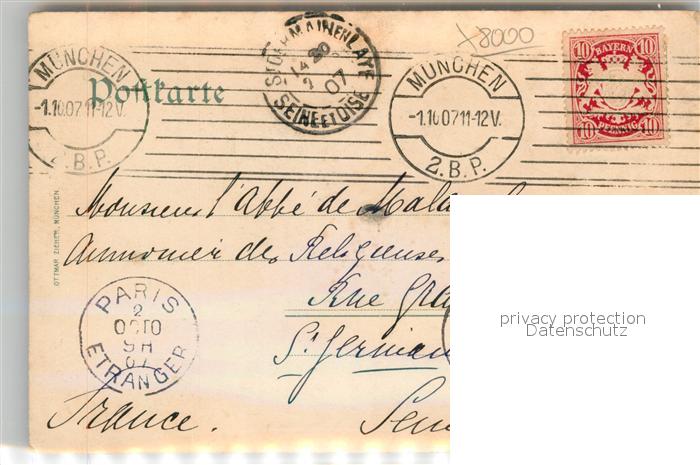 +8000
MÜNCHEN
-1.10.07 11-12 V.
2.B.P.
Postkarte
ST GERMAIN EN LAYE
20
2
07
SEINE ET OISE
MÜNCHEN
-1.10.07 11-12 V.
2.B.P.
10 BAYERN 10
10 PFENNIG 10
Monsieur l'Abbé de
Aumonier des Religieuses
Rue
St Germain
France.
OTTMAR ZIEHER, MÜNCHEN
PARIS
2
OCTO
9H
07
ETRANGER
privacy protection
Datenschutz